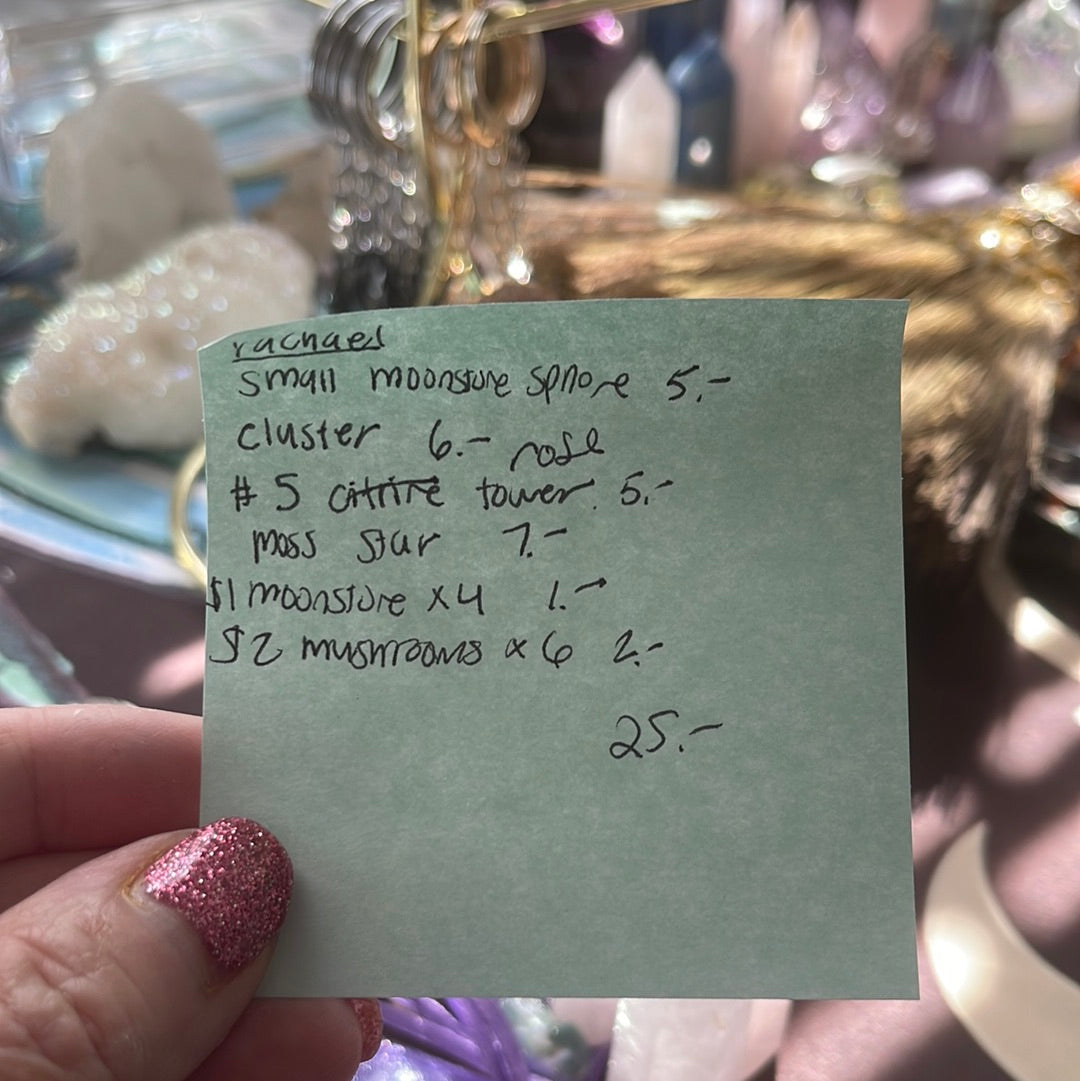 rachael
small moonstone sphere 5.-
cluster 6.- rose
# 5 citrine tower. 5.-
moss star 7.-
$1 moonstone x4 1.-
$2 mushrooms x 6 2.-
25.-